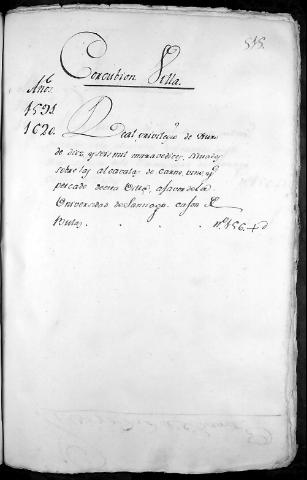 515.
Corcubion Villa.
Años
1591.
1620.
Real privilegio de Juro
de diez y seis mil maravedises, situados
sobre las alcavalas de carne, vino, y
pescado de esta Villa, a favor de la
Universidad de Santiago. Cajon
Bulas . . . . nº 156.